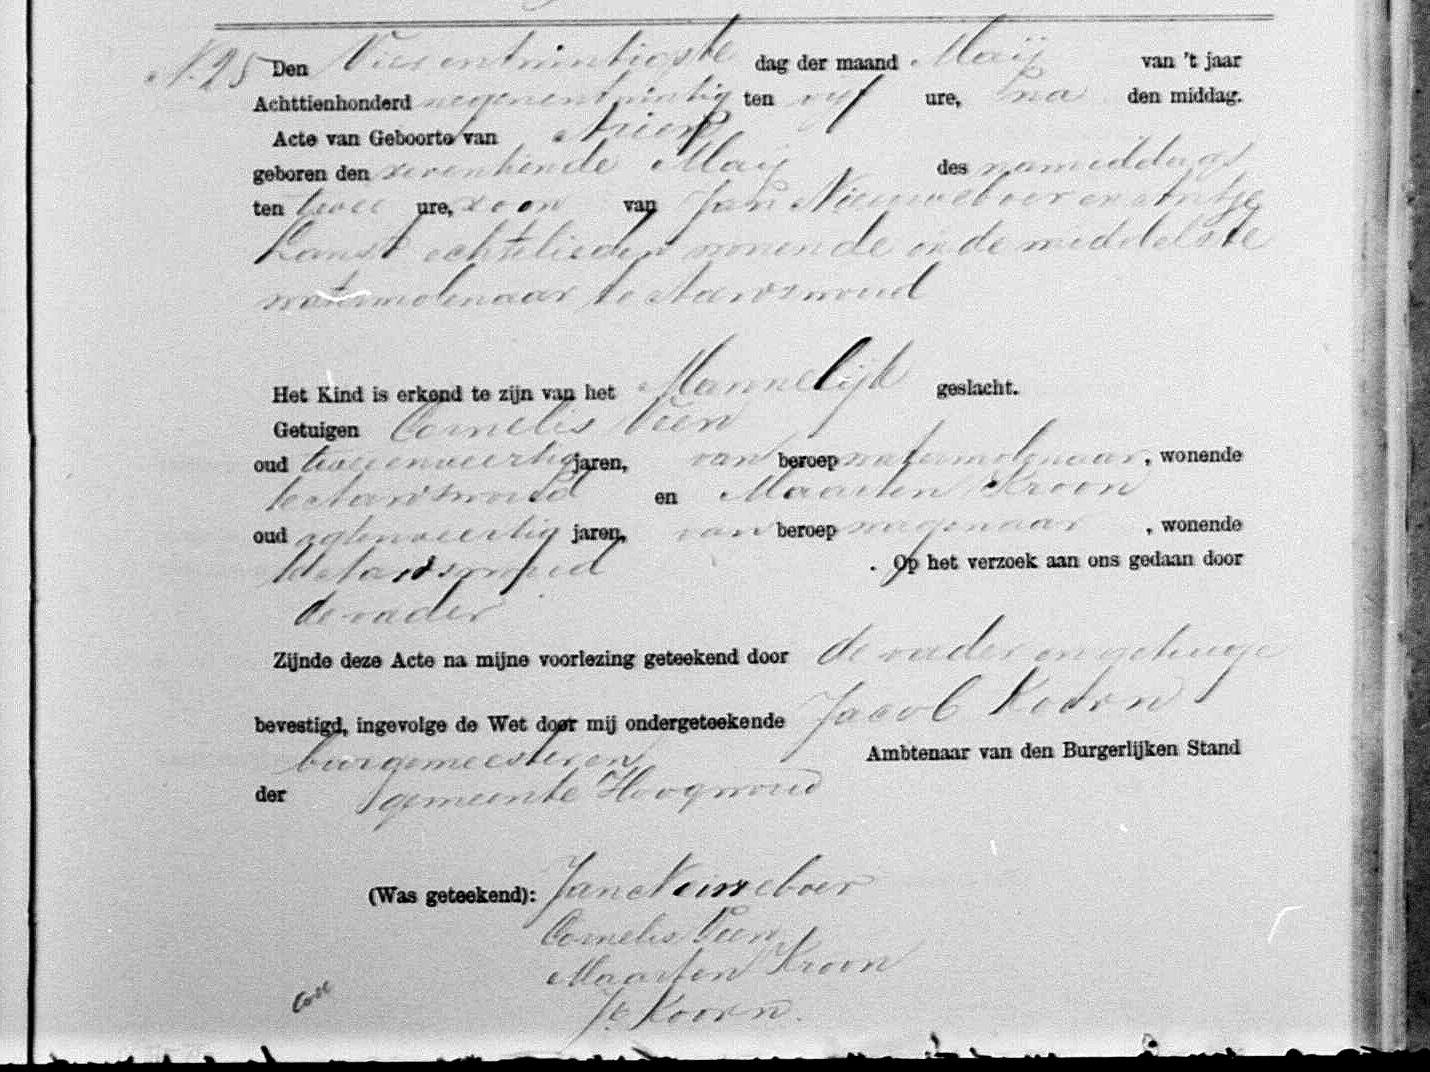 N. 25 Den Vier entwintigste dag der maand Maij van 't jaar
Achttienhonderd negenentwintig ten vijf ure, na den middag.
Acte van Geboorte van Arien
geboren den zeventiende Maij des namiddags
ten twee ure, zoon van Jan Nieuweboer en Antje
Kanst echtelieden wonende in de middelste
watermolenaar te Aartswoud
Het Kind is erkend te zijn van het Mannelijk geslacht.
Getuigen Cornelis Veen
oud tweeenveertig jaren, van beroep watermolenaar, wonende
te Aartswoud en Maarten Kroon
oud agtenveertig jaren, van beroep wagenaar, wonende
te Aartswoud. Op het verzoek aan ons gedaan door
de vader
Zijnde deze Acte na mijne voorlezing geteekend door de vader en getuige
bevestigd, ingevolge de Wet door mij ondergeteekende Jacob Koorn
burgemeester en Ambtenaar van den Burgerlijken Stand
der gemeente Hoogwoud
(Was geteekend): Jan Neiweboer
Cornelis Veen
Maarten Kroon
Jb Koorn.